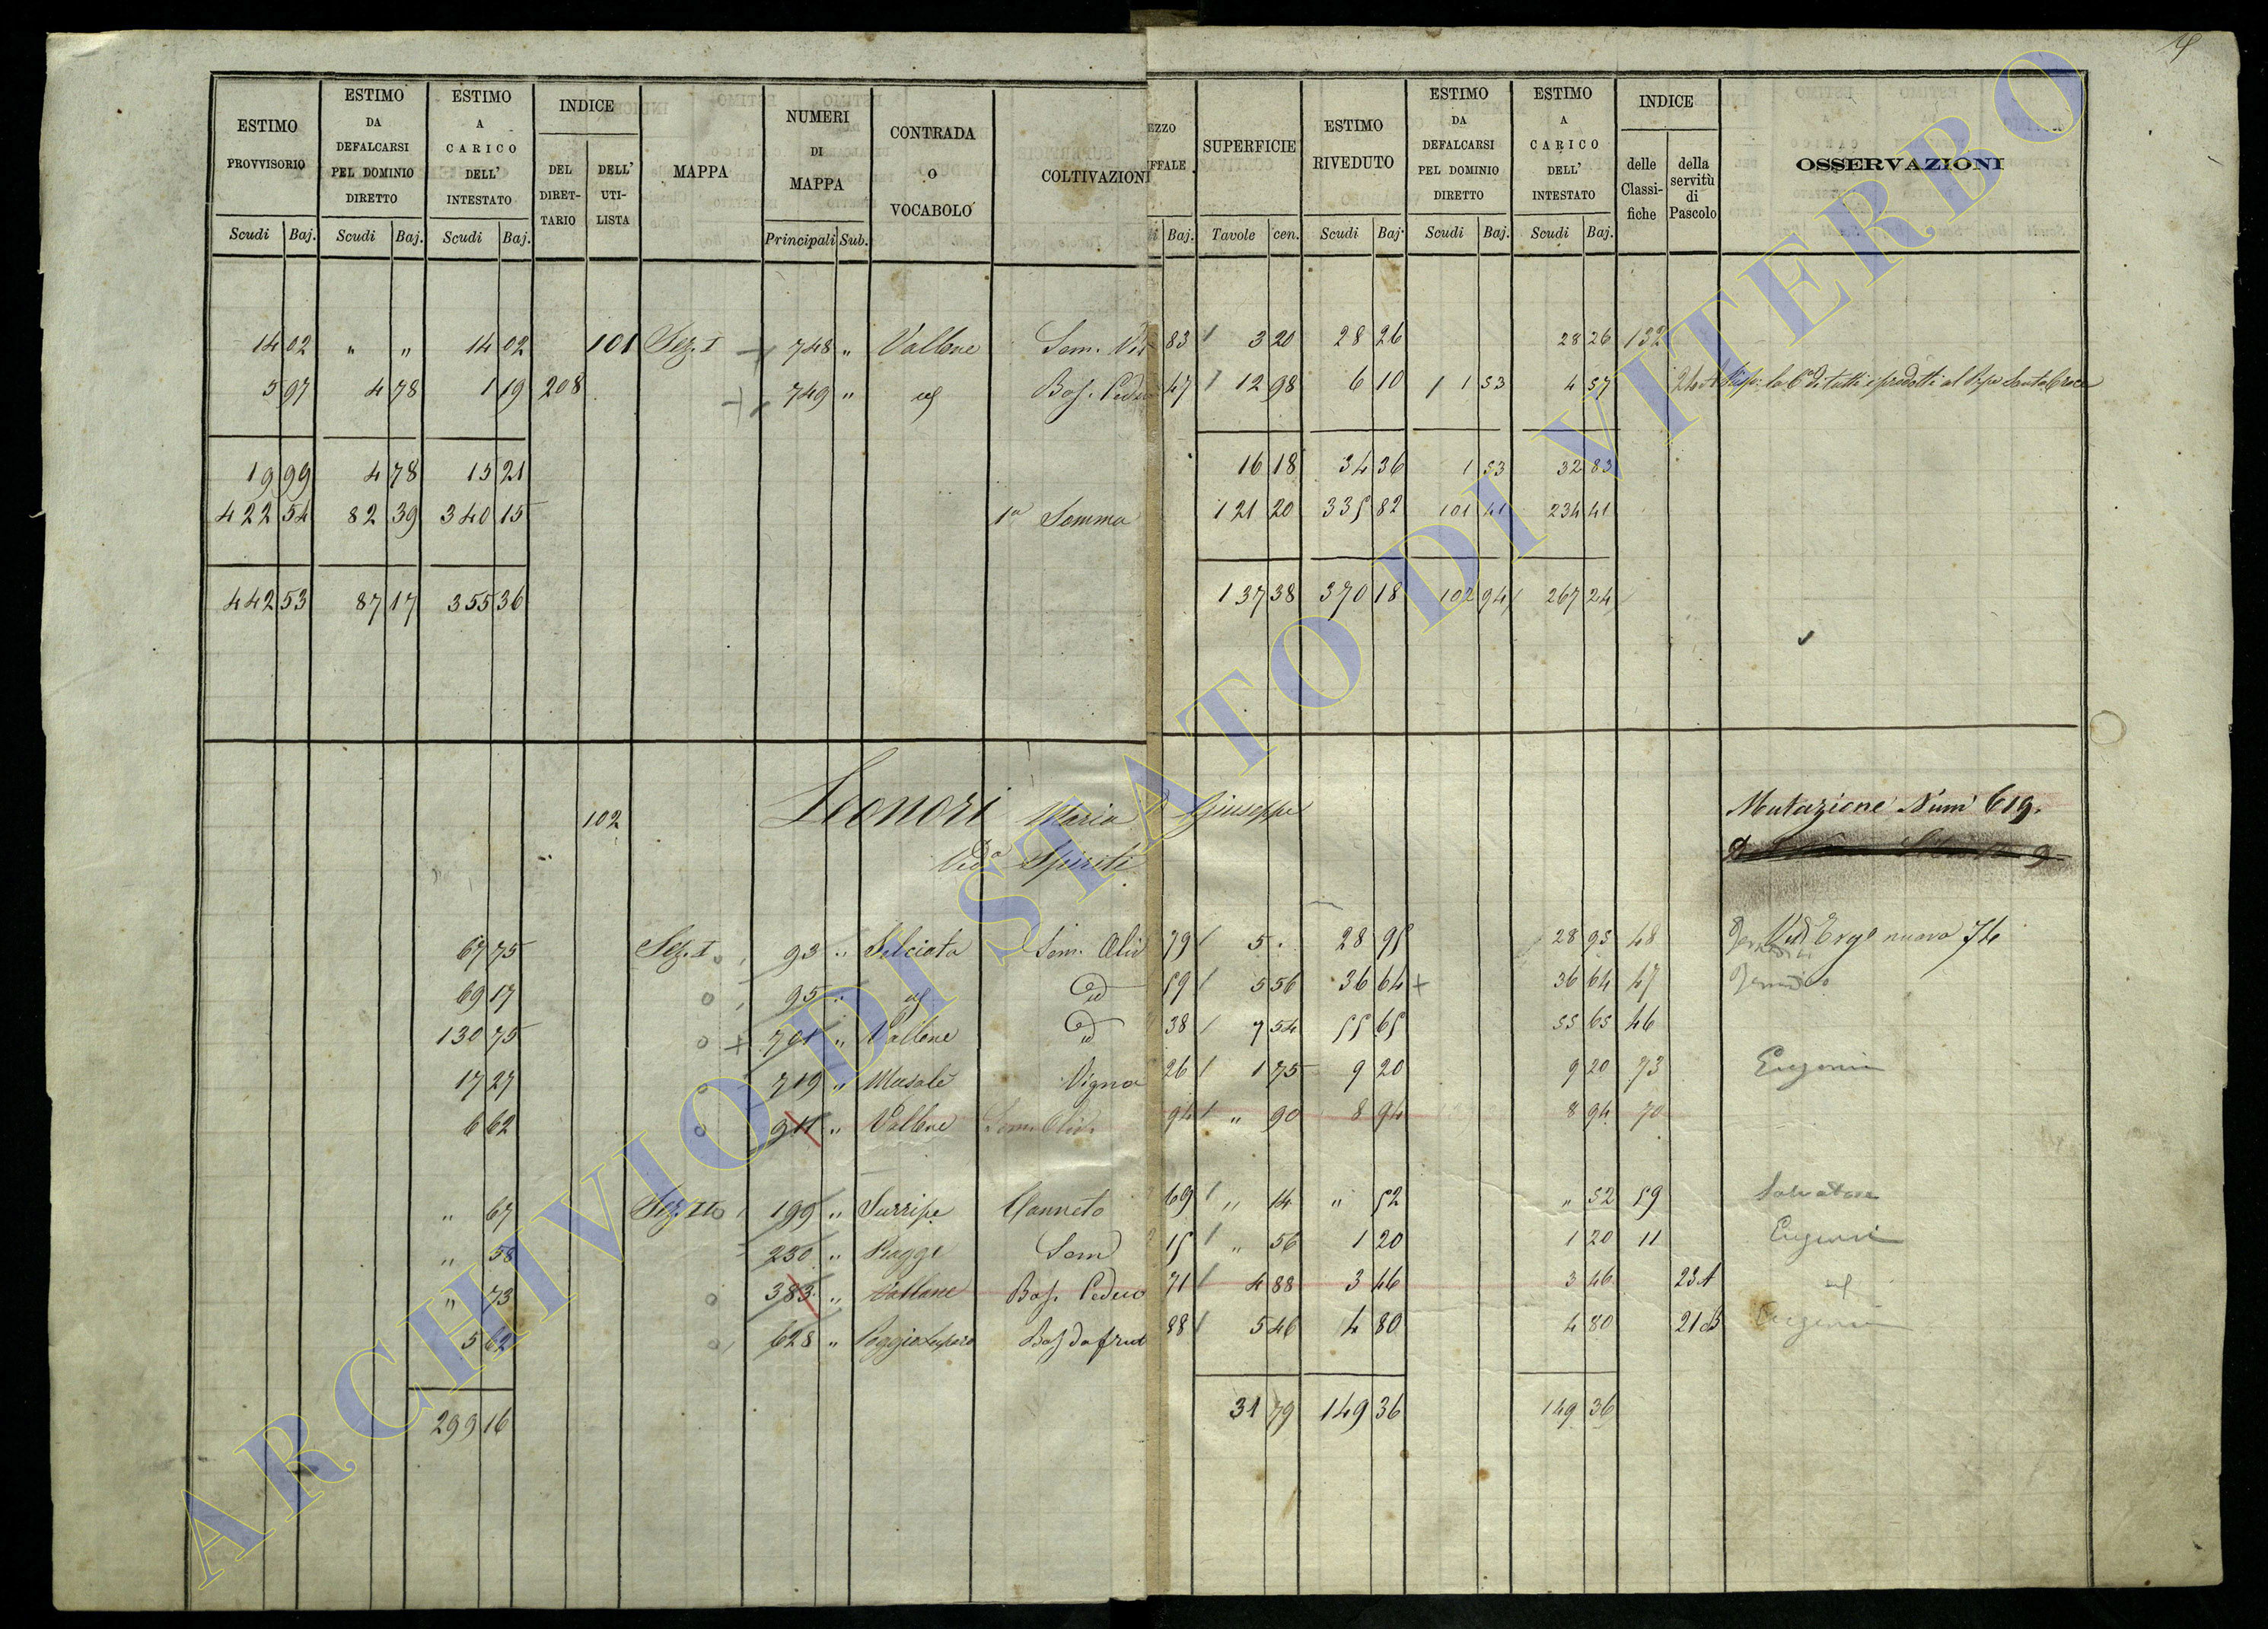 ESTIMO PROVVISORIO
ESTIMO DA DEFALCARSI PEL DOMINIO DIRETTO
ESTIMO A CARICO DELL' INTESTATO
INDICE
DEL DIRET-TARIO
DELL' UTI-LISTA
MAPPA
NUMERI DI MAPPA
CONTRADA O VOCABOLO
COLTIVAZIONI
EZZO
IFFALE
SUPERFICIE
ESTIMO RIVEDUTO
ESTIMO DA DEFALCARSI PEL DOMINIO DIRETTO
ESTIMO A CARICO DELL' INTESTATO
INDICE
delle Classi-fiche
della servitù di Pascolo
OSSERVAZIONI
Scudi Baj. Scudi Baj. Scudi Baj. Principali Sub. Baj. Tavole cen. Scudi Baj. Scudi Baj. Scudi Baj.
14 02 " " 14 02 101 Sez. I 748 " Vallone Sem. Vit 83 3 20 28 26 28 26 132
5 97 4 78 1 19 208 749 " id Bos. Ceduo 47 12 98 6 10 1 53 4 57
19 99 4 78 15 21 16 18 34 36 1 53 32 83
422 54 82 39 340 15 1a Somma 121 20 335 82 101 41 234 41
442 53 87 17 355 36 137 38 370 18 102 94 267 24
102 Leonori Maria Giuseppe
Veda Spiriti
Mutazione Num 619.
67 75 Sez. I 93 " Selciata Sem. Oliv 79 5 . 28 95 28 95 48
69 17 95 " id id 59 5 56 36 64 36 64 47
130 75 701 " Vallone id 38 7 54 55 65 55 65 46
17 27 719 " Masale Vigna 26 1 75 9 20 9 20 73 Eugenia
6 62 911 " Vallone Sem. Oliv. 94 " 90 8 94 8 94 70
" 67 Sez. II 199 " Surripe Canneto 69 " 14 " 52 " 52 59 Salvatore
" 58 230 " Piagge Sem 15 " 56 1 20 1 20 11 Eugenia
" 73 383 " Vallone Bos. Ceduo 71 4 88 3 46 3 46 23A id
5 62 628 " Poggio Lupaio Bos da frut 88 5 46 4 80 4 80 21B Eugenia
299 16 31 79 149 36 149 36
ARCHIVIO DI STATO DI VITERBO